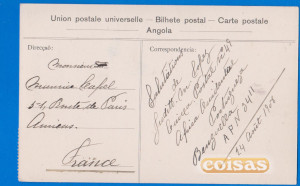 Union postale universelle – Bilhete postal – Carte postale
Angola
Direcção:
Monsieur
Maurice
51, Route de Paris
Amiens
France
Correspondencia:
Salutations
de
Caixa Postal nº 49
Africa Occidental
Portugueza
Benguella
24 août 1908
coisas